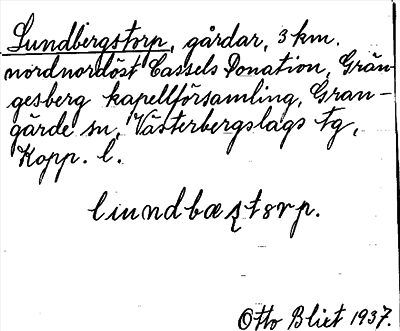 Lundbergstorp, gårdar, 3 km.
nordnordöst Cassels Donation, Grän-
gesberg kapellförsamling, Gran-
gärde sn, Västerbergslags tg,
Kopp. l.
Otto Blixt 1937.